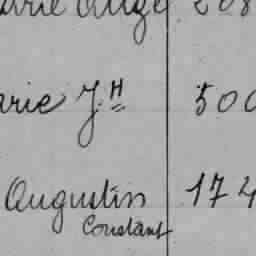 arie Ange 208
arie J.H 500
Augustin 174
Constant